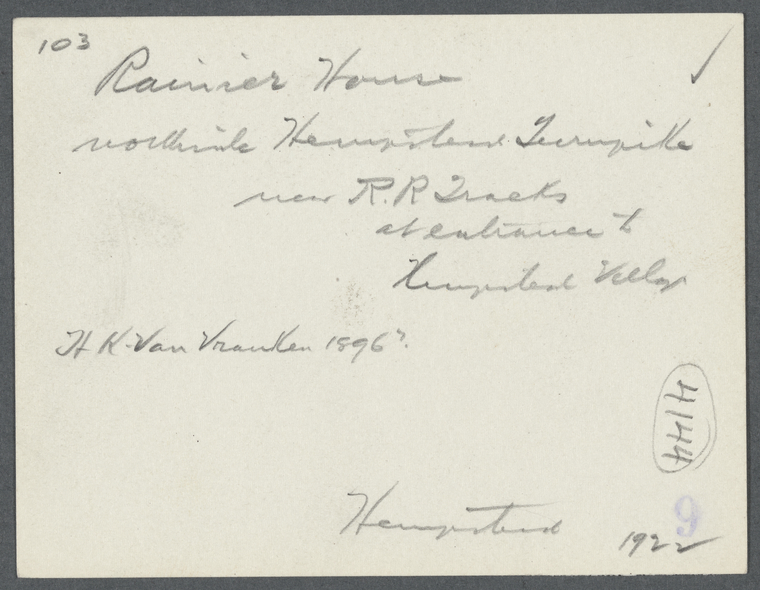 103
Rainier House
northside Hempstead Turnpike
near R.R Tracks
at entrance to
Hempstead Village
H K. Van Vranken 1896?
4144
9
Hempstead 1922